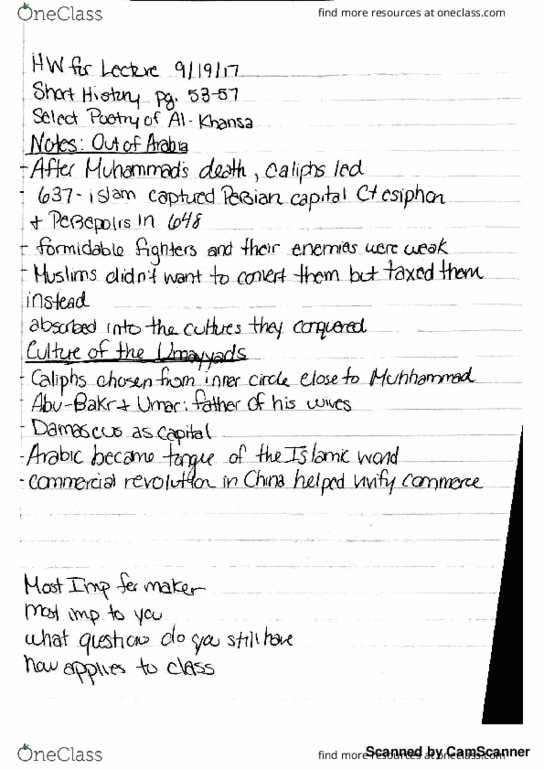 OneClass
find more resources at oneclass.com
HW for Lecture 9/19/17
Short History pg. 53-57
Select Poetry of Al-Khansa
Notes: Out of Arabia
- After Muhammad's death, caliphs led
- 637- islam captured Persian capital Ctesiphon
+ Persepolis in 648
- formidable fighters and their enemies were weak
- Muslims didn't want to convert them but taxed them
instead
absorbed into the cultures they conquered
Culture of the Umayyads
- Caliphs chosen from inner circle close to Muhhammad
Abu-Bakr + Umar: father of his wives
- Damascus as capital
- Arabic became tongue of the Islamic world
- commercial revolution in China helped vivify commerce
Most Imp for maker
most imp to you
what questions do you still have
how applies to class
OneClass
find more resources at oneclass.com
Scanned by CamScanner